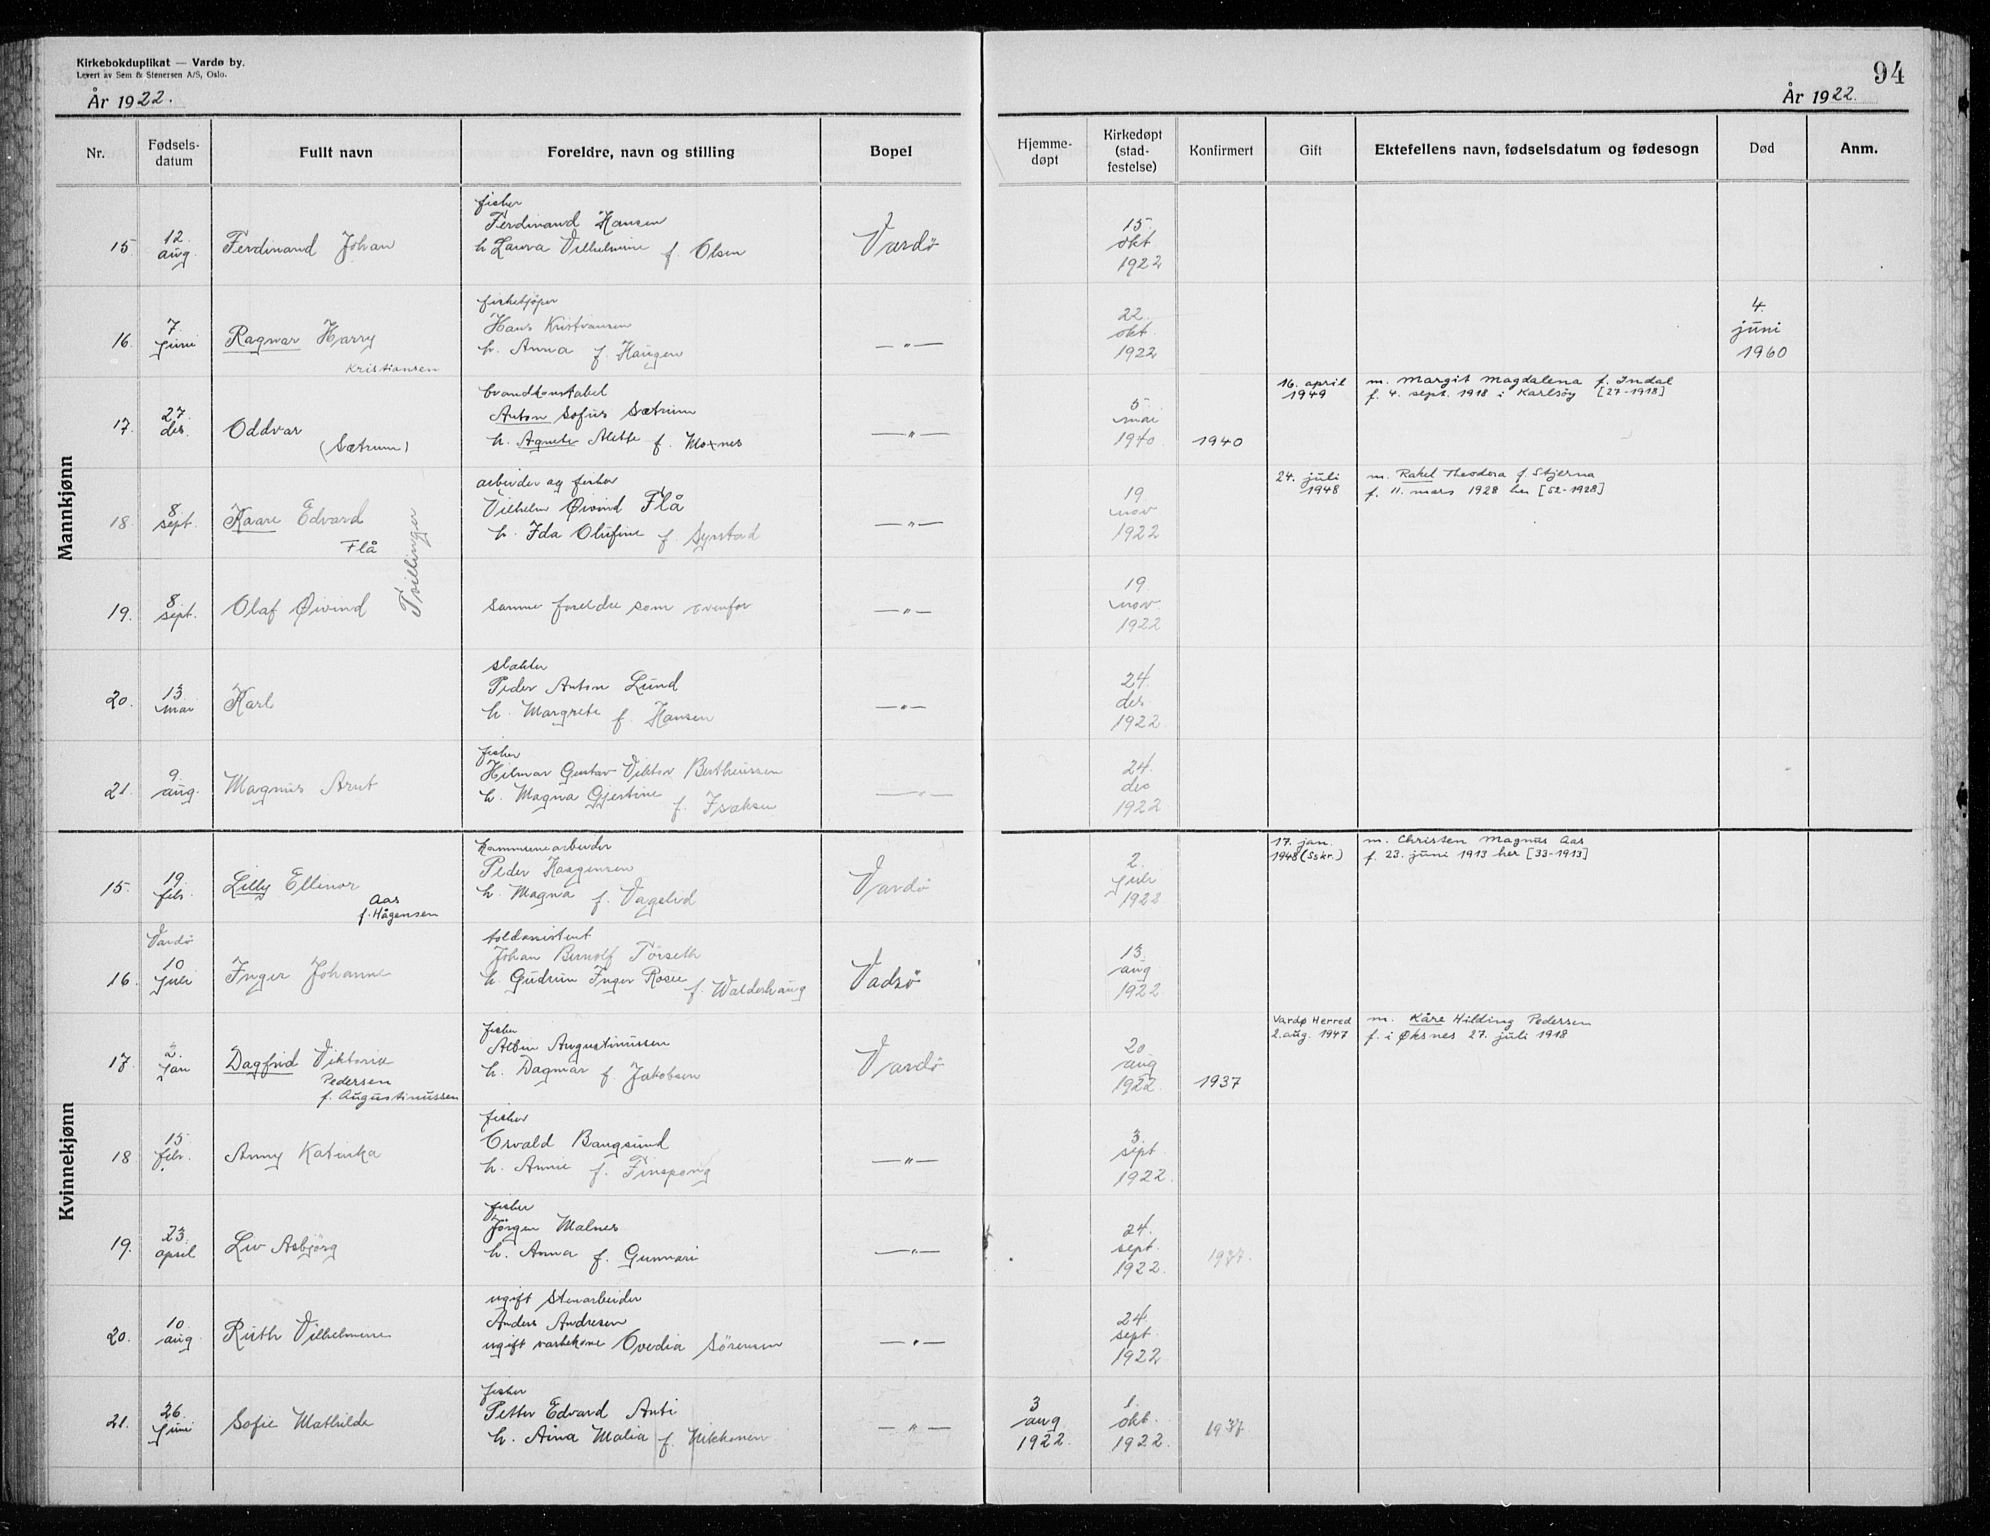 Kirkebokduplikat — Vardø by.
Levert av Sem & Stenersen A/S, Oslo.
År 1922.
94
År 1922.
Nr.
Fødsels-
datum
Fullt navn
Foreldre, navn og stilling
Bopel
Hjemme-
døpt
Kirkedøpt
(stad-
festelse)
Konfirmert
Gift
Ektefellens navn, fødselsdatum og fødesogn
Død
Anm.
Mannkjønn
15
12.
aug.
Ferdinand Johan
fisker
Ferdinand Hansen
h. Laura Vilhelmine f. Olsen
Vardø
15.
okt
1922
16.
7.
juni
Ragnar Harry
Kristiansen
fiskekjøper
Hans Kristiansen
h. Anna f. Haugen
—"—
22.
okt.
1922
4.
juni
1960
17.
27.
des.
Oddvar
(Sætrum)
brandkonstabel
Anton Sofus Sætrum
h. Agnete Alette f. Moxnes
—"—
5.
mai
1940.
1940
16. april
1949
m. Margit Magdalena f. Indal
f. 4. sept. 1918 i Karlsøy [27-1918]
18.
8.
sept.
Kaare Edvard
Flå
Tvillinger
arbeider og fisker
Vilhelm Øivind Flå
h. Ida Olufine f. Syrstad
—"—
19.
nov
1922
24. juli
1948
m. Rakel Theodora f. Stjerna
f. 11. mars 1928 her [52-1928]
19.
8
sept.
Olaf Øivind
samme foreldre som ovenfor
—"—
19.
nov.
1922
20.
13.
mai
Karl
slakter
Peder Anton Lund
h. Margrete f. Hansen
—"—
24.
des.
1922
21.
9.
aug.
Magnus Arnt
fisker
Hilmar Gustav Viktor Bertheussen
h. Magna Gjertine f. Isaksen
—"—
24.
des
1922
Kvinnekjønn
15.
19.
febr.
Lilly Ellinor
Aas
f. Hågensen
kommunearbeider
Peder Haagensen
h. Magna f. Vagelid
Vardø
2.
juli
1922
17. jan.
1948 (Sskr.)
m. Christen Magnus Aas
f. 23. juni 1913 her [33-1913]
16.
Vardø
10
juli
Inger Johanne
tollassistent
Johan Bernolf Torseth
h. Gudrun Inger Rosee f. Walderhaug
Vadsø
13.
aug
1922.
17.
2.
jan
Dagfrid Viktoria
Pedersen
f. Augustinussen
fisker
Albin Augustinussen
h. Dagmar f. Jakobsen
Vardø
20.
aug
1922.
1937
Vardø Herred
2. aug. 1947
m. Kåre Hilding Pedersen
f. i Øksnes 27. juli 1918
18
15.
febr.
Anny Katinka
fisker
Osvald Bangsund
h. Annie f. Finspong
—"—
3.
sept.
1922.
19.
23.
april
Liv Asbjörg
fisker
Jörgen Malnes
h. Anna f. Gunnari
—"—
24.
sept.
1922.
1937.
20.
10.
aug
Ruth Vilhelmine
ugift stenarbeider
Anders Andresen
ugift vaskekone Ovedia Sörensen
—"—
24.
sept.
1922
21.
26.
juni
Sofie Mathilde
fisker
Petter Edvard Anti
h. Aina Malia f. Mikkonen
—"—
3
aug
1922.
1.
okt.
1922.
1937.